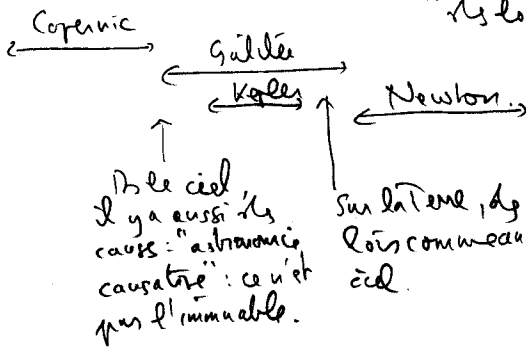 Copernic
Galilée
Kepler
Newton.
Ds le ciel,
il y a aussi des
causes : "astronomie
causatrice" : ce n'est
pas l'immuable.
Sur la Terre, des
lois comme au
ciel.